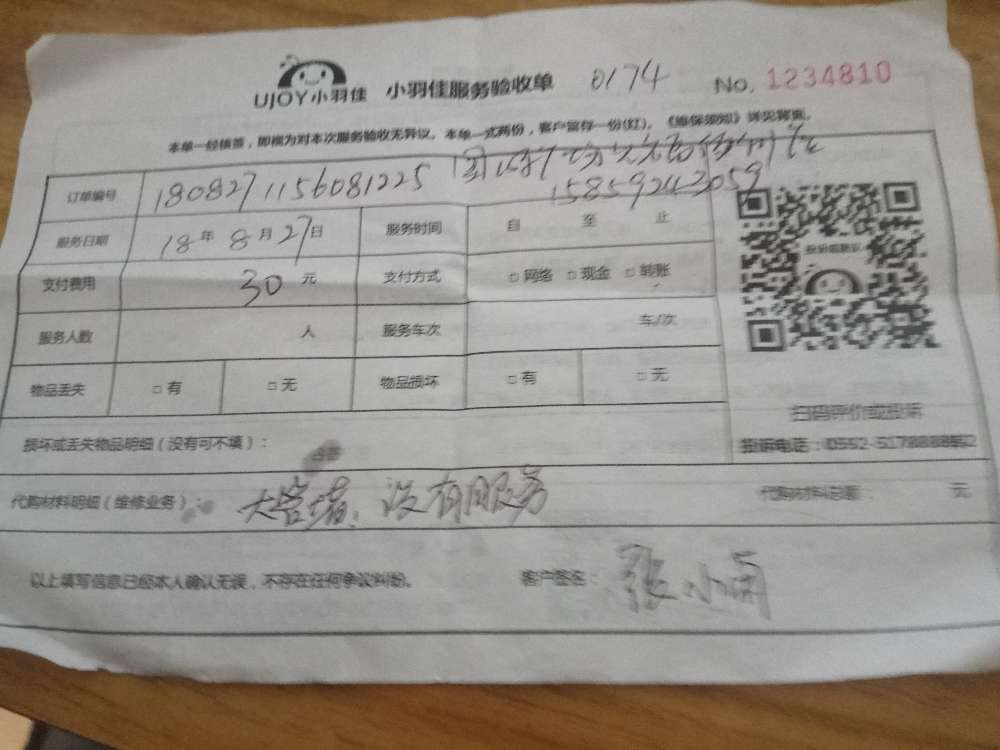 UJOY小羽佳 小羽佳服务验收单 0174 No. 1234810
本单一经核签，即视为对本次服务验收无异议。本单一式两份，客户留存一份(红)。《维保须知》详见背面。
订单编号 1808271156081225
15859243059
服务日期 18年8月27日 服务时间 自 至 止
支付费用 30元 支付方式 □网络 □现金 □转账
服务人数 人 服务车次 车/次
物品丢失 □有 □无 物品损坏 □有 □无
扫码评价或投诉
损坏或丢失物品明细（没有可不填）：
投诉电话：0552-5178888转2
代购材料明细（维修业务）： 大管堵、没有服务 代购材料总额： 元
以上填写信息已经本人确认无误，不存在任何争议纠纷。 客户签名： 张小雨